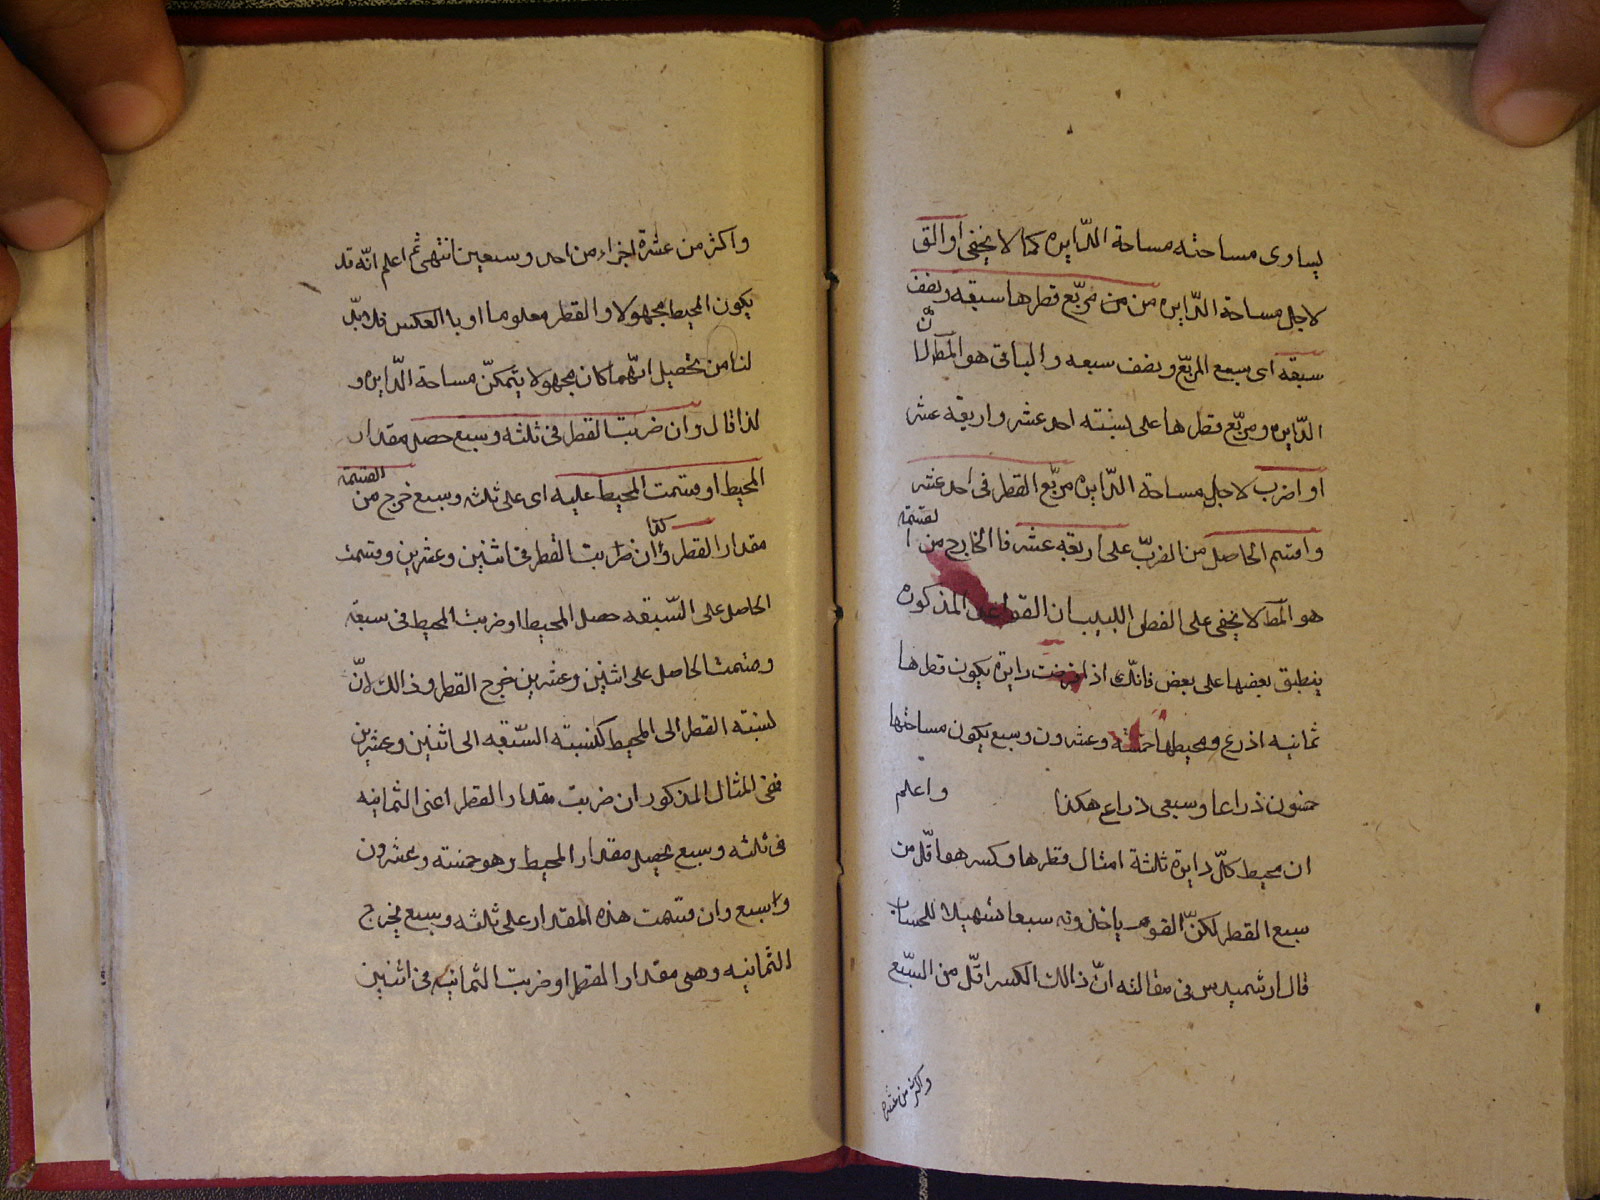 يساوى مساحته مساحة الدّايره كما لا يخفى او الق
لاجل مساحة الدّايره من من مربّع قطرها سبعه ونصف
سبعه اى سبع المربّع ونصف سبعه والباقى هو المط لانّ
الدّايره ومربّع قطرها على نسبته احد عشر واربعه عشر
او اضرب لاجل مساحة الدّايره مربّع القطر فى احد عشر
واقسم الحاصل من الضربّ على اربعه عشر فا الخارج من القسمة
هو المط لا يخفى على الفطن اللبيب ان القواعد المذكوره
ينطبق بعضها على بعض فانّك اذا فرضت دايرة يكون قطرها
ثمانيه اذرع ومحيطها خمسة وعشرون وسبع يكون مساحتها
خمسون ذراعا وسبعى ذراع هكذا واعلم
ان محيط كلّ دايرة ثلثة امثال قطرها وكسر هو اقلّ من
سبع القطر لكنّ القوم ياخذونه سبعا تسهيلا للحساب
قال ارشميدس فى مقالته انّ ذالك الكسر اقلّ من السبّع
واكثر من عشرة
واكثر من عشرة اجزاء من احد وسبعين انتهى ثم اعلم انّه قد
يكون المحيط مجهولا والقطر معلوما او با العكس فلا بدّ
لنا من تحصيل ايّهما كان مجهولا يتمكنّ مساحة الدّايره و
لذا قال وان ضربت القطر فى ثلثه وسبع حصل مقدار
المحيط او قسمت المحيط عليه اى على ثلثه وسبع خرج من القسمة
مقدار القطر وكذا ان ضربت القطر فى اثنين وعشرين وقسمت
الحاصل على السّبعه حصل المحيط او ضربت المحيط فى سبعه
وقسمت الحاصل على اثنين وعشرين خرج القطر وذالك لانّ
نسبته القطر الى المحيط كنسبته السّبعه الى اثنين وعشرين
ففى المثال المذكور ان ضربت مقدار القطر اعنى الثمانيه
فى ثلثه وسبع يحصل مقدار المحيط وهو خمسته وعشرون
واسبع وان قسمت هذه المقدار على ثلثه وسبع يخرج
الثمانيه وهى مقدار القطر او ضربت الثمانيه فى اثنين